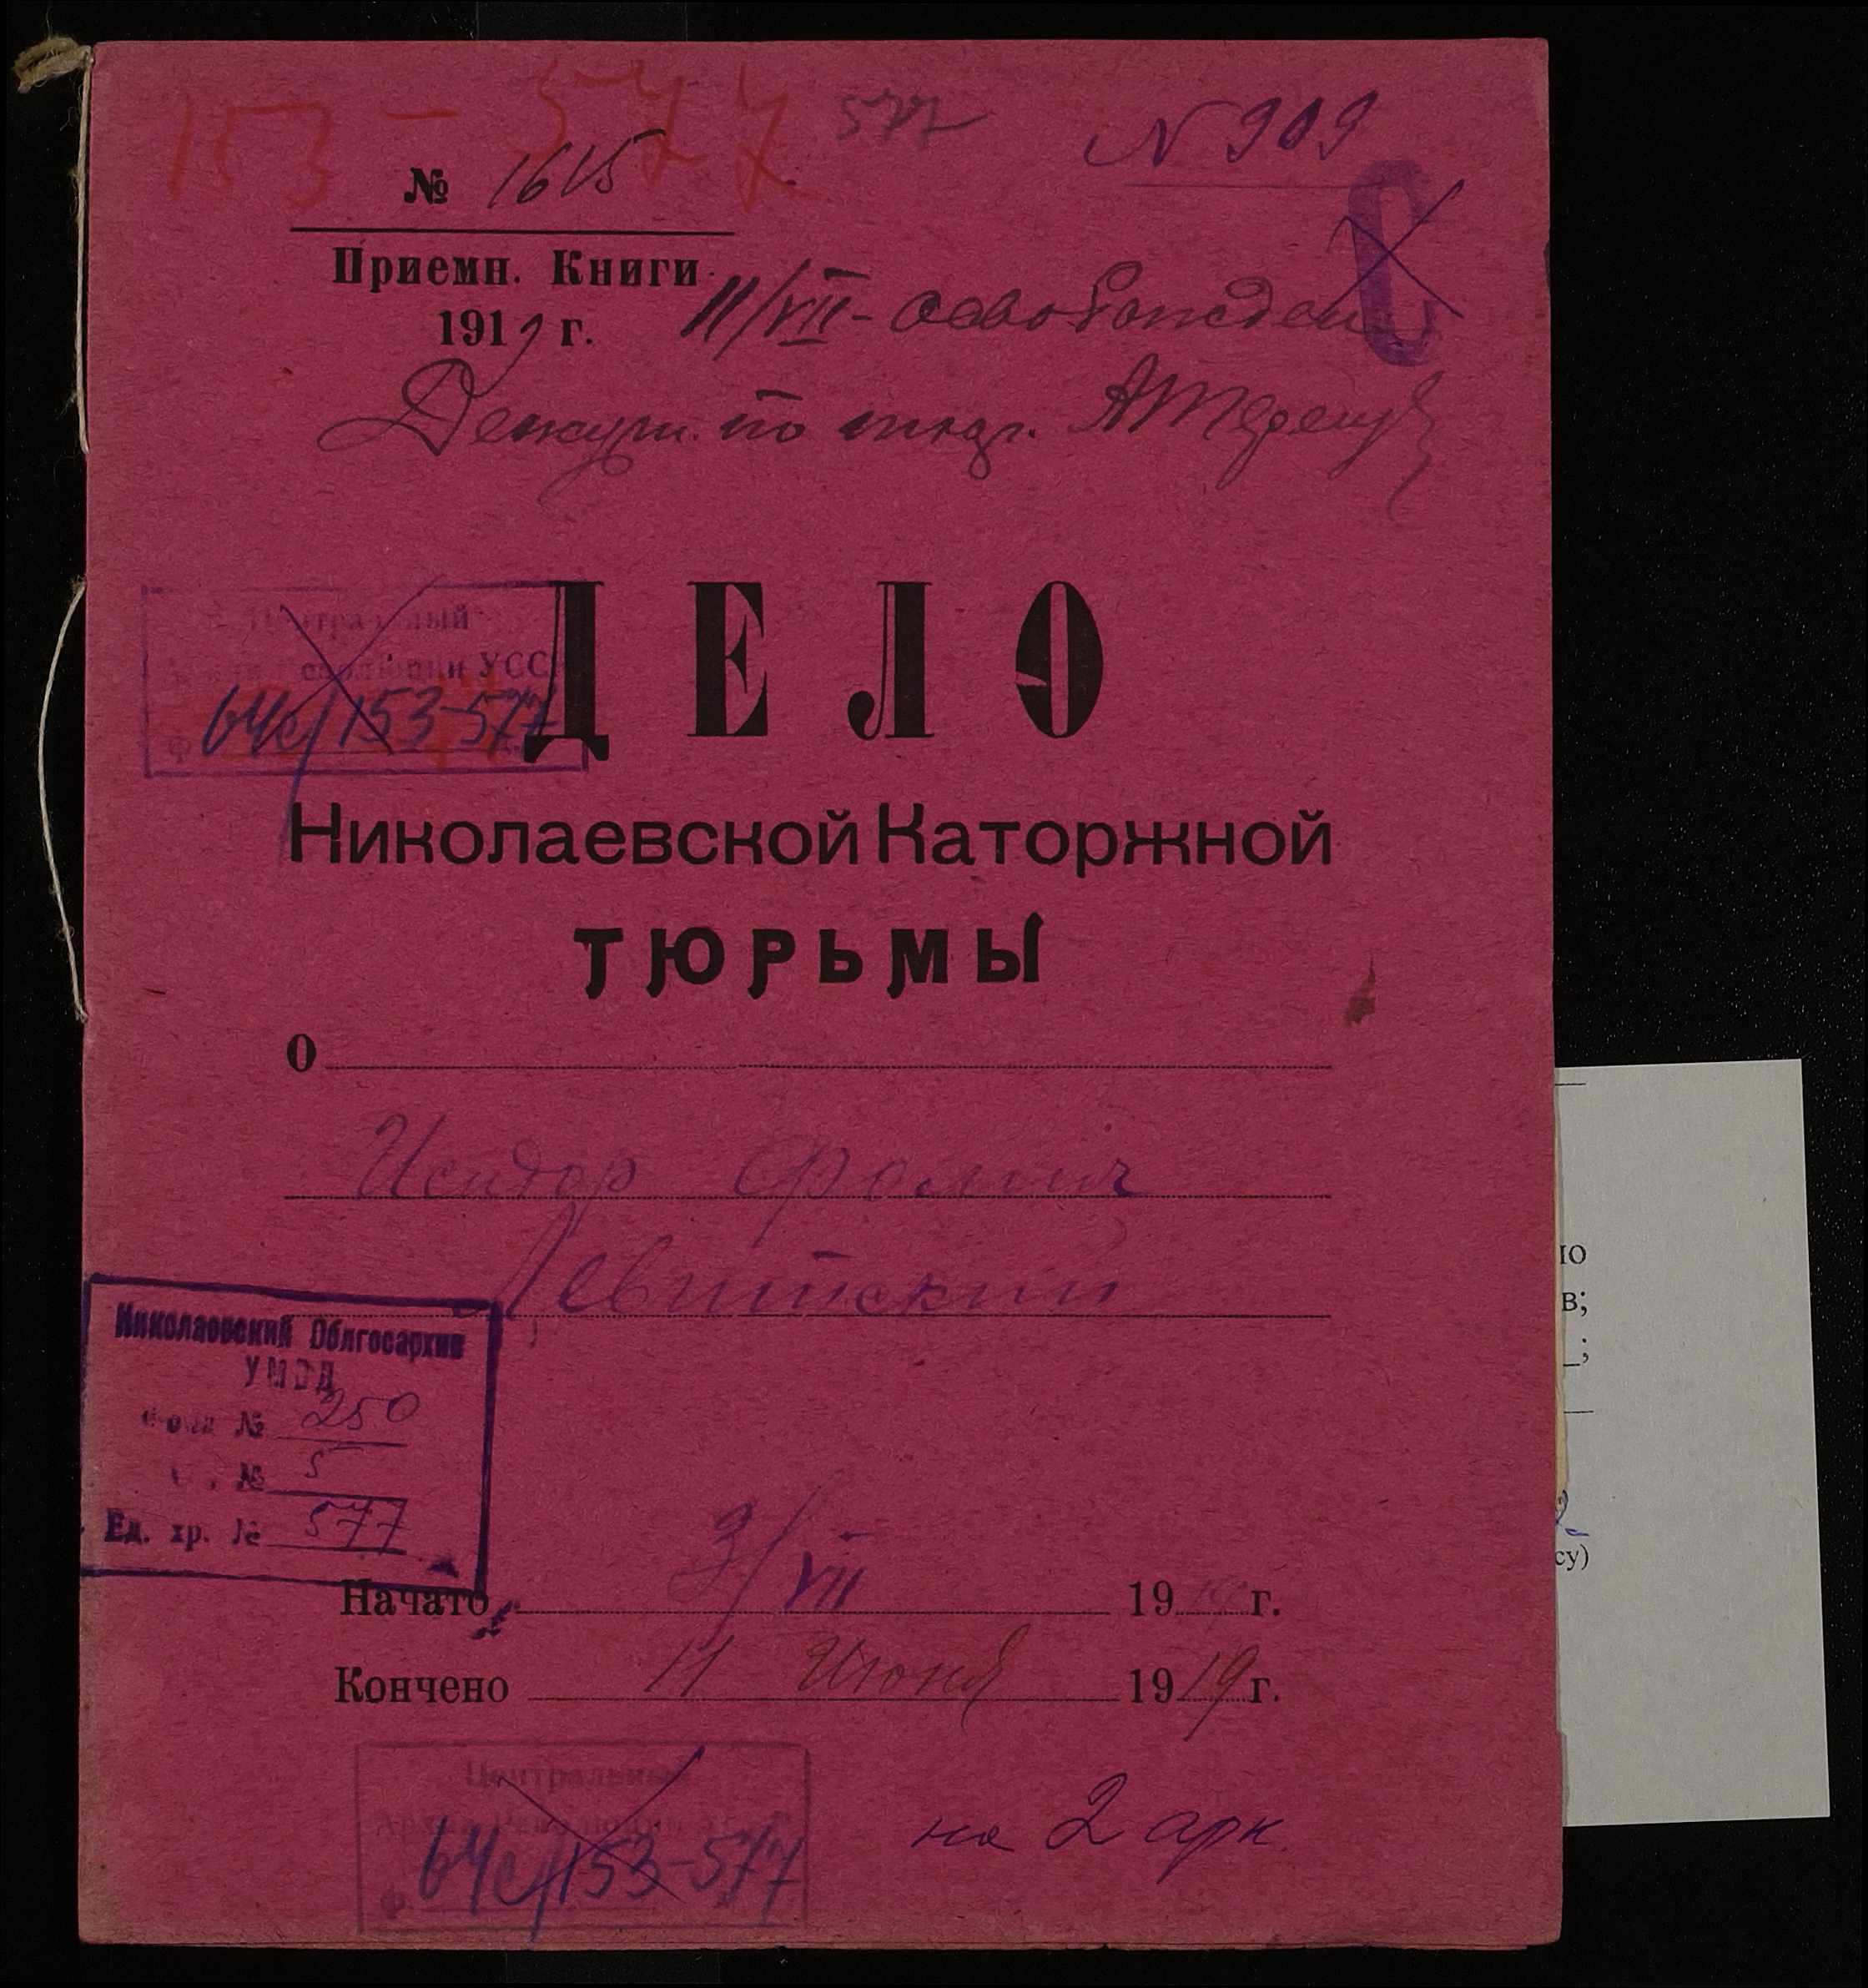 153 - 577 577 N 909
№ 1615
С
Приемн. Книги
1919 г. 11/VII - освобожден
Дежурн. по тюр.
Центральный
Архив Революции УССР
64с/153-577
ДЕЛО
Николаевской Каторжной
ТЮРЬМЫ
О
Исидор Фомич
Левитский
Николаевский Облгосархив
УМВД
Фонд № 250
№ 5
Ед. хр. № 577
Начато 3/VII 1919 г.
Кончено 11 Июня 1919 г.
Центральный
Архив Революции УССР
Ф. 64с/153-577
на 2 арк.
ю
в;
су)